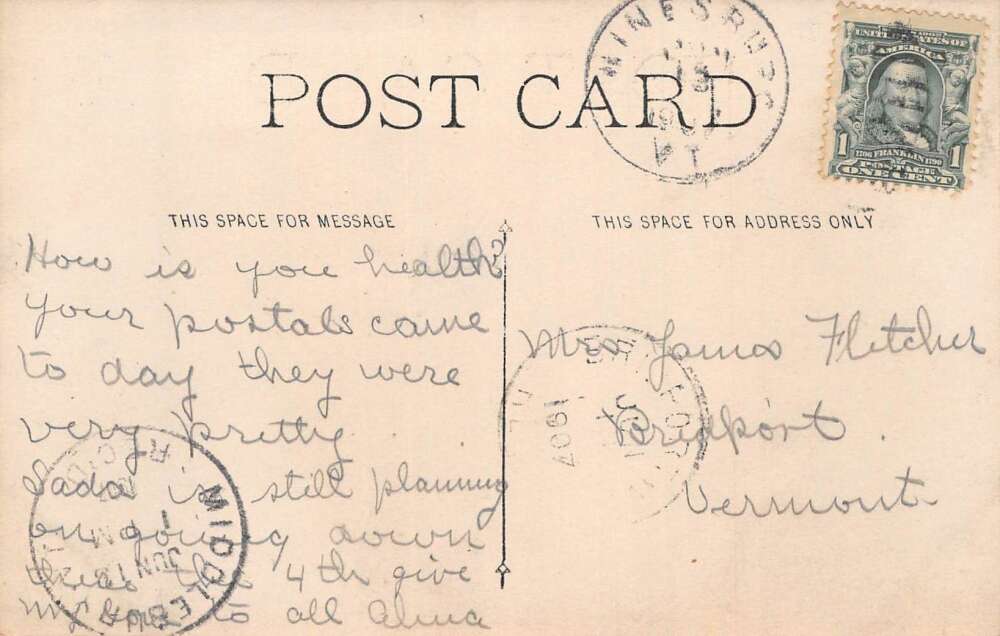 POST CARD
HINESBURG
JUN
13
1907
VT
UNITED STATES OF
AMERICA
1
1706 FRANKLIN 1790
1
POSTAGE
ONE CENT
THIS SPACE FOR MESSAGE
THIS SPACE FOR ADDRESS ONLY
How is you health?
Your postals came
to day they were
very pretty
Sada is still planning
on going down
there the 4th give
my love to all Alma
Mrs James Fletcher
Bridport
Vermont
1907
MIDDLEBU
JUN 13